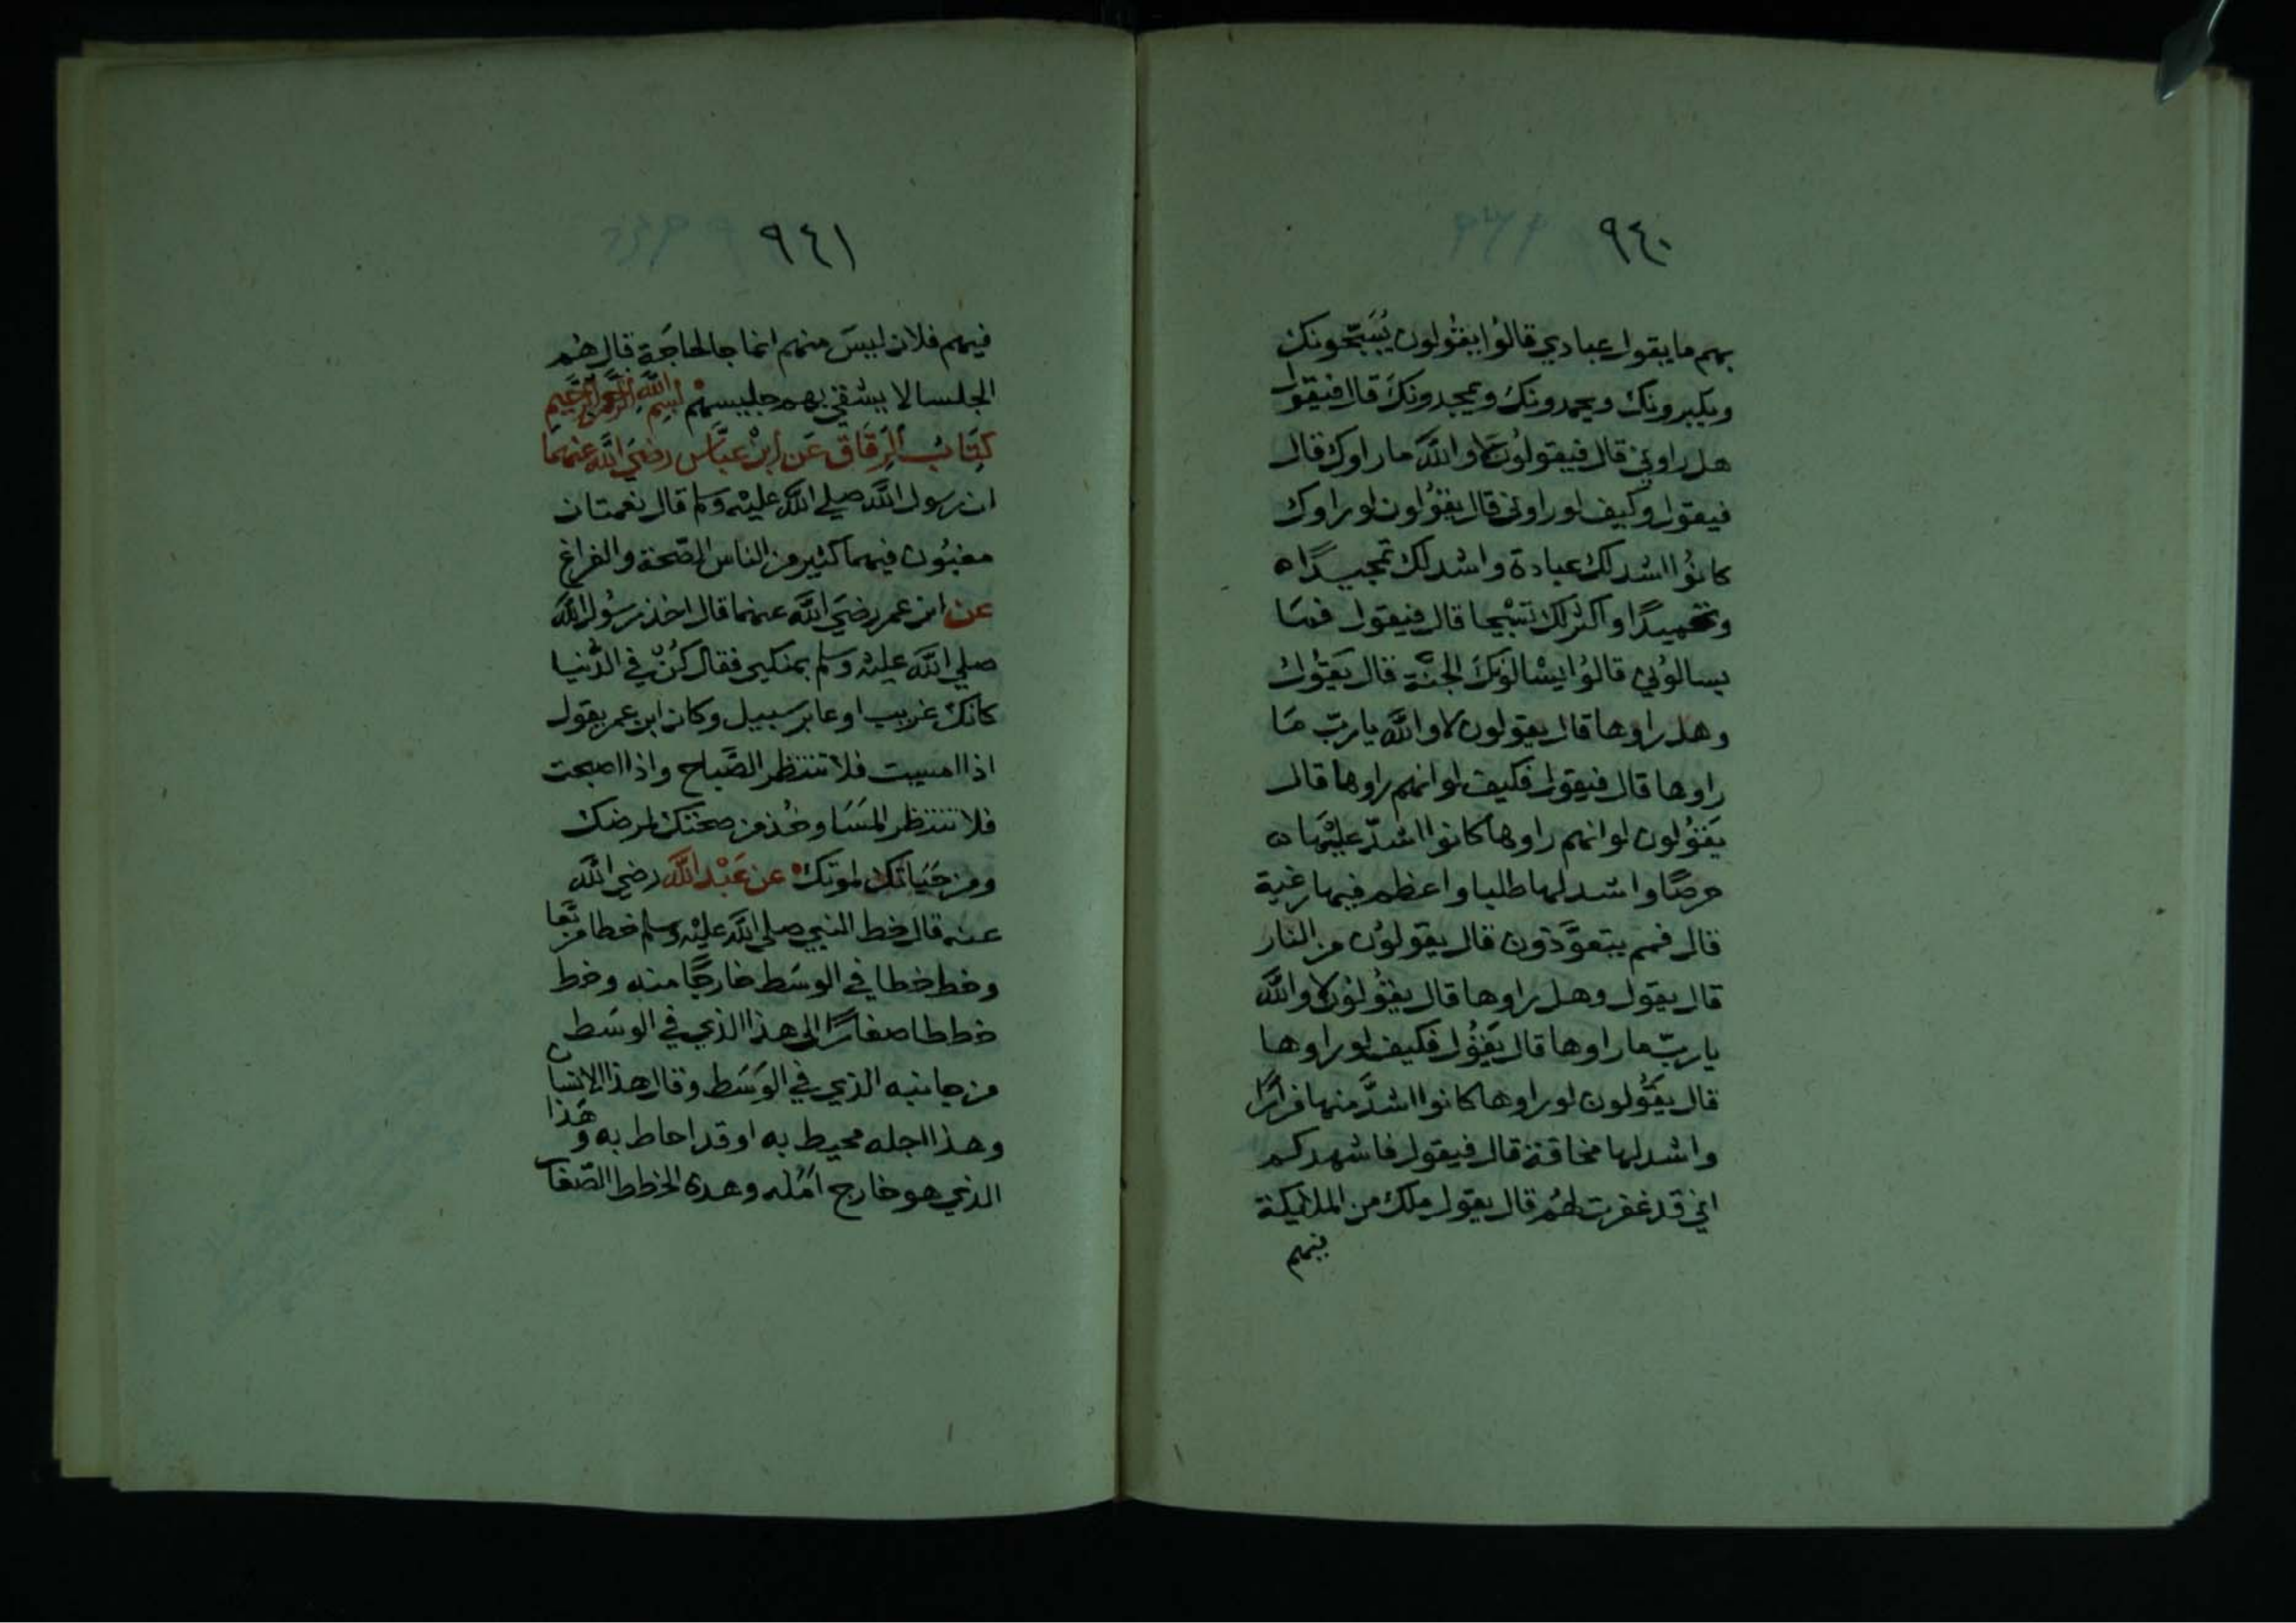 ٩٤٠
بهم ما يقول عبادي قالوا يقولون يُسَبِّحونك
ويكبرونك ويحمدونك ويمجدونك قال فيقول
هل راوني قال فيقولون لا والله ما راوك قال
فيقول وكيف لو راوني قال يقولون لو راوك
كانوا اشد لك عبادة واشد لك تمجيدًا ه
وتحميدًا واكثر لك تسبيحا قال فيقول فما
يسالوني قالوا يسالونك الجنة قال يقول
وهل راوها قال يقولون لا والله يا ربّ ما
راوها قال فيقول فكيف لو انهم راوها قال
يقولون لو انهم راوها كانوا اشدّ عليها ه
حرصًا واشد لها طلبا واعظم فيها رغبة
قال فمم يتعوَّذون قال يقولون من النار
قال يقول وهل راوها قال يقولون لا والله
يا ربّ ما راوها قال يقول فكيف لو راوها
قال يقولون لو راوها كانوا اشدَّ منها فرارًا
واشد لها مخافة قال فيقول فاشهدكم
اني قد غفرت لهم قال يقول ملك من الملائكة
فيهم
٩٤١
فيهم فلان ليسَ منهم انما جا لحاجَة قال هُم
الجلسا لا يشقي بهم جليسهم بسم الله الرحمن الرحيم
كتابُ الرقاق عَن ابن عبَّاس رضيَ الله عنهما
ان رسول الله صلي الله عليه وسلم قال نعمتان
مغبُون فيهما كثير من الناس الصّحة والفراغ
عن ابن عمر رضيَ الله عنهما قال اخذ رسُول الله
صلي الله عليه وسلم بمنكبي فقال كُنْ في الدُّنيا
كانك غريب او عابر سَبيل وكان ابن عمر يقول
اذا امسيت فلا تنتظر الصَّباح واذا اصبحت
فلا تنتظر المَسَا وخُذ من صحتك لمرضك
ومن حَيَاتك لموتك عن عَبْد الله رضي الله
عنه قال خط النبي صلي الله عليه وسلم خطا مربَّعا
وخط خطا في الوسَط خارجًا منه وخط
خططا صغارًا الى هذا الذي في الوسَط
من جانبه الذي في الوَسَط وقال هذا الانسان
وهذا اجله محيط به او قد احاط به وهَذا
الذي هو خارج امَله وهذه الخطط الصّغار